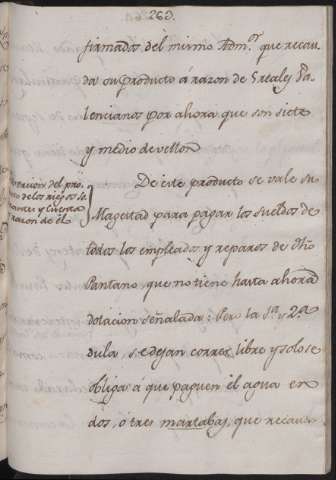 260.
firmadas del mismo Adm.r que recau
da su producto á razon de 5 reales Va
lencianos por ahora que son siete
y medio de vellon
De este producto se vale su
del pro
de los riegos
y Cuenta
razon de él
Magestad para pagar los sueldos de
todos los empleados y reparos de dho
Pantano, que no tiene hasta ahora
dotacion señalada: Por la 1.a y 2.a
dula, se dejan correr libre y solo se
obliga á que paguen él agua en
dos, ó tres martabas, que recau